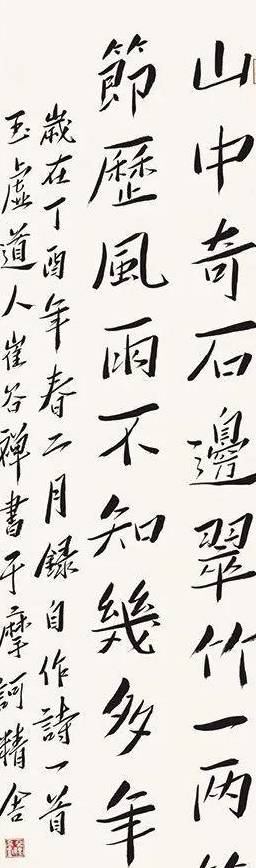 山中奇石邊翠竹一两
節歷風雨不知幾多年
歲在丁酉年春二月録自作詩一首
玉虛道人崔谷禅書于摩訶精舍